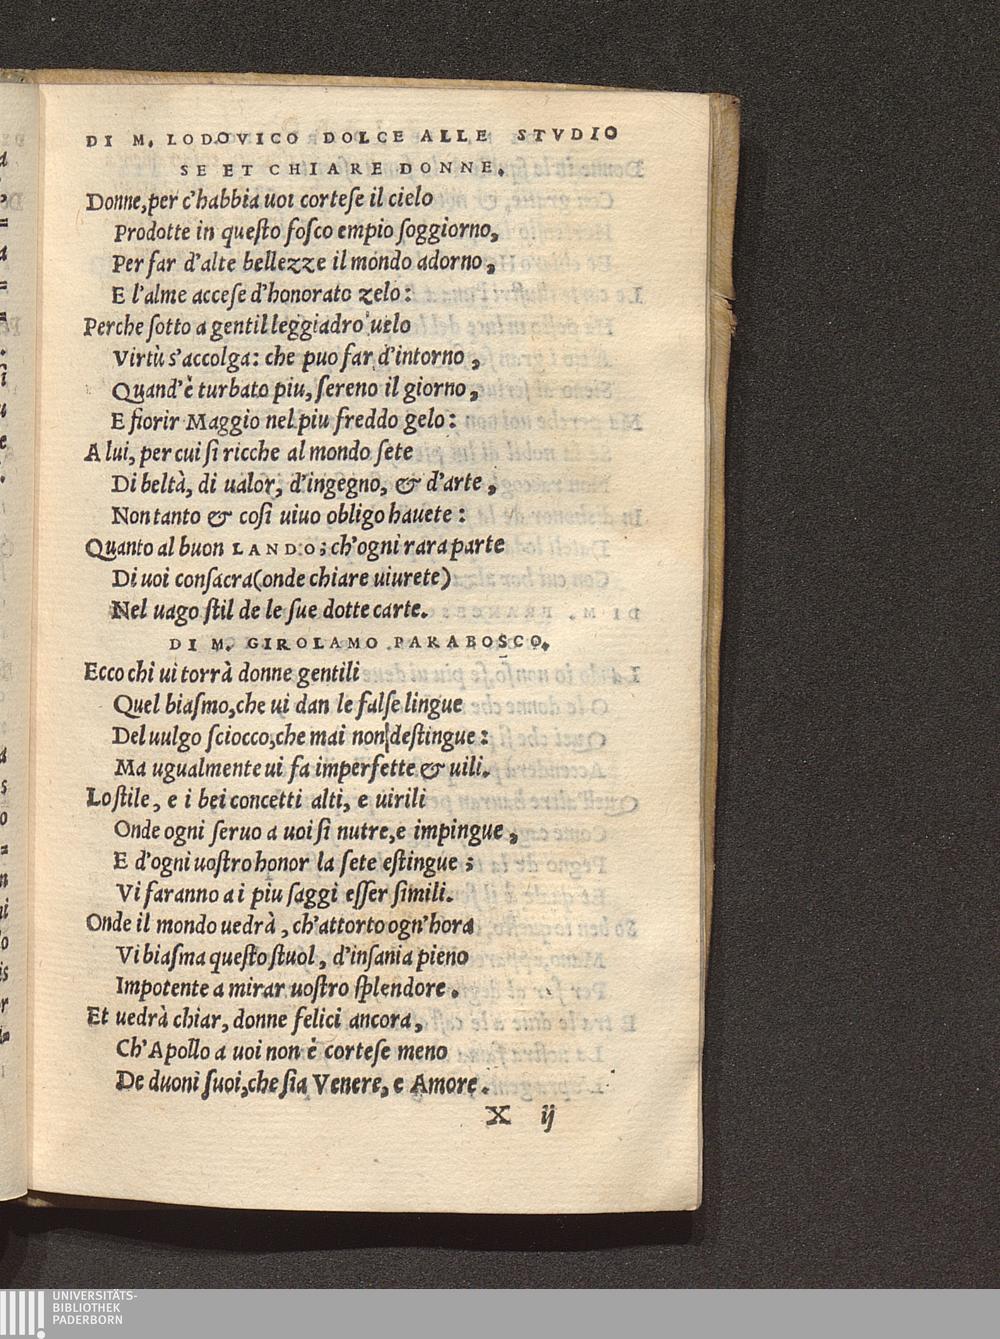 DI M. LODOVICO DOLCE ALLE STVDIO
SE ET CHIARE DONNE.
Donne, per c'habbia uoi cortese il cielo
Prodotte in questo fosco empio soggiorno,
Per far d'alte bellezze il mondo adorno,
E l'alme accese d'honorato zelo:
Perche sotto a gentil leggiadro uelo
Virtù s'accolga: che puo far d'intorno,
Quand'è turbato piu, sereno il giorno,
E fiorir Maggio nel piu freddo gelo:
A lui, per cui si ricche al mondo sete
Di beltà, di ualor, d'ingegno, & d'arte,
Non tanto & cosi uiuo obligo hauete:
Quanto al buon LANDO; ch'ogni rara parte
Di uoi consacra (onde chiare uiurete)
Nel uago stil de le sue dotte carte.
DI M. GIROLAMO PARABOSCO.
Ecco chi ui torrà donne gentili
Quel biasmo, che ui dan le false lingue
Del uulgo sciocco, che mai non destingue:
Ma ugualmente ui fa imperfette & uili.
Lo stile, e i bei concetti alti, e uirili
Onde ogni seruo a uoi si nutre, e impingue,
E d'ogni uostro honor la sete estingue;
Vi faranno a i piu saggi esser simili.
Onde il mondo uedrà, ch'attorto ogn'hora
Vi biasma questo stuol, d'insania pieno
Impotente a mirar uostro splendore.
Et uedrà chiar, donne felici ancora,
Ch'Apollo a uoi non è cortese meno
De duoni suoi, che sia Venere, e Amore.
X ij
UNIVERSITÄTS-
BIBLIOTHEK
PADERBORN